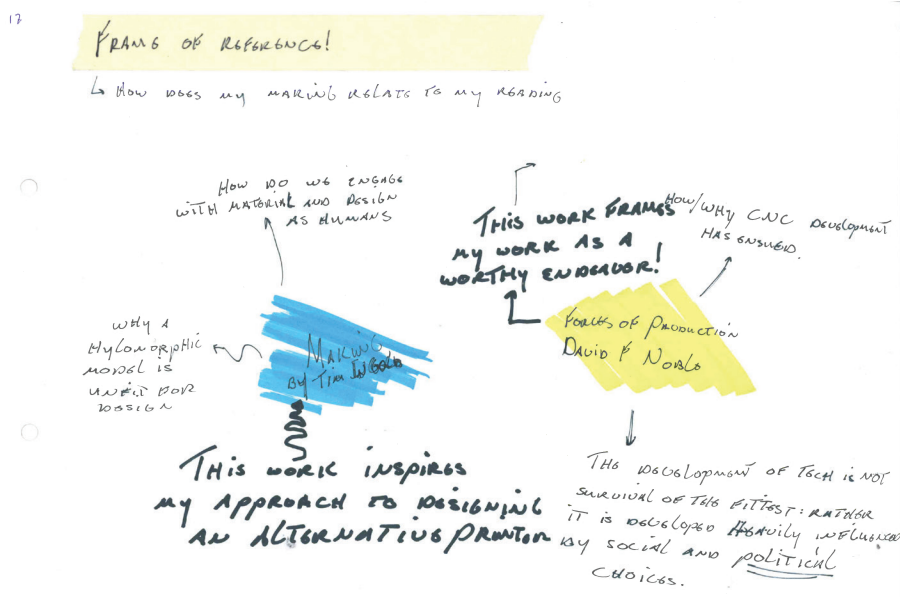 17
FRAME OF REFERENCE!
↳ HOW DOES MY MAKING RELATE TO MY READING
HOW DO WE ENGAGE
WITH MATERIAL AND DESIGN
AS HUMANS
WHY A
HYLOMORPHIC
MODEL IS
UNFIT FOR
DESIGN
MAKING
BY TIM INGOLD
THIS WORK INSPIRES
MY APPROACH TO DESIGNING
AN ALTERNATIVE PRINTER
THIS WORK FRAMES
MY WORK AS A
WORTHY ENDEAVOR!
HOW/WHY CNC DEVELOPMENT
HAS ENSUED.
FORCES OF PRODUCTION
DAVID F NOBLE
THE DEVELOPMENT OF TECH IS NOT
SURVIVAL OF THE FITTEST: RATHER
IT IS DEVELOPED HEAVILY INFLUENCED
BY SOCIAL AND POLITICAL
CHOICES.